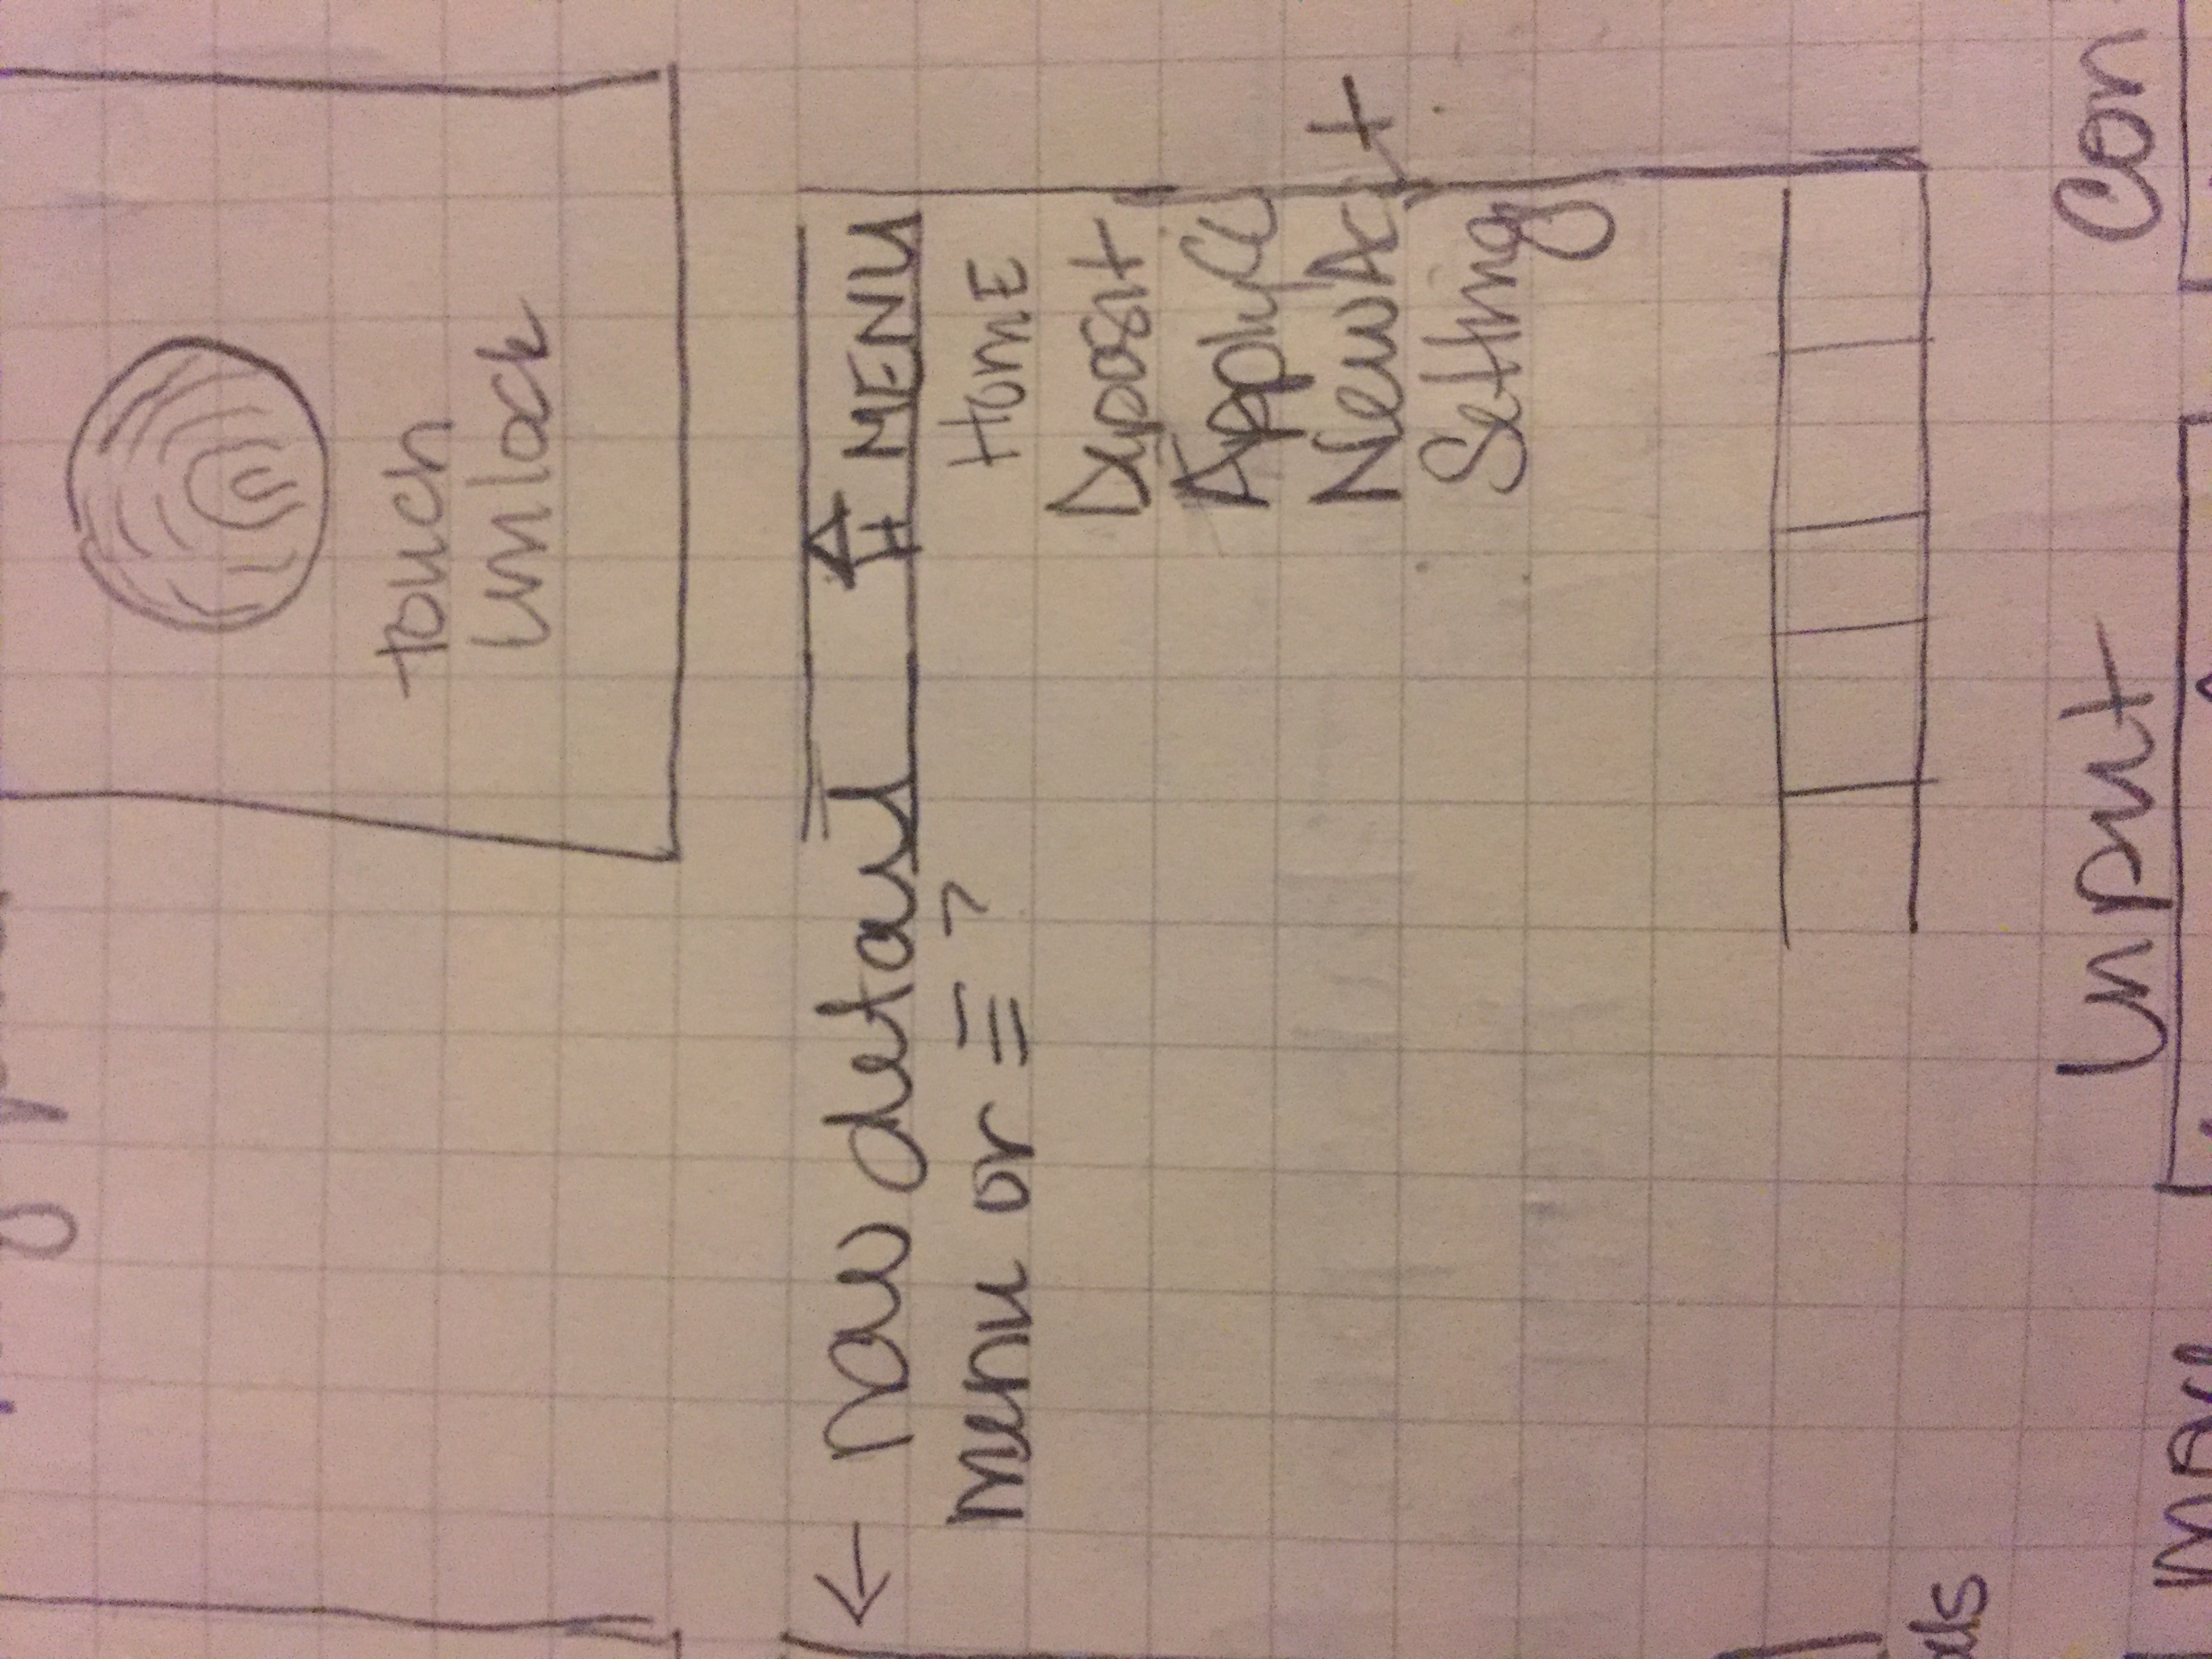 touch
unlock
← nav detail
menu or ☰ ?
MENU
HomE
Deposit
Apply CC
New Acct
Setting
Input